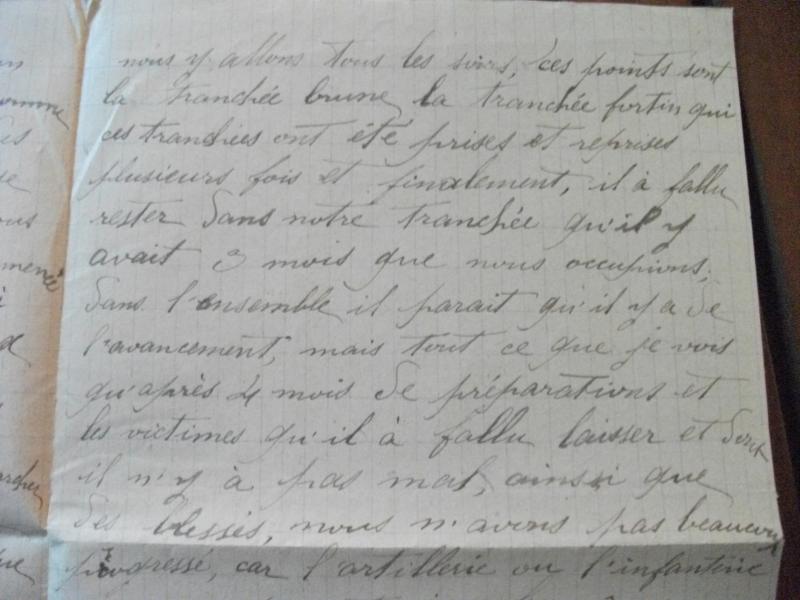 nous y allons tous les soirs, ces points sont
la tranchée brune, la tranchée fortin qui
ces tranchées ont été prises et reprises
plusieurs fois et finalement, il à fallu
rester dans notre tranchée qu'il y
avait 3 mois que nous occupions,
dans l'ensemble il parait qu'il y a de
l'avancement, mais tout ce que je vois
qu'après 4 mois de préparations et
les victimes qu'il à fallu laisser et dont
il n'y à pas mal, ainsi que
des blessés, nous n'avons pas beaucoup
progressé, car l'artillerie ou l'infanterie